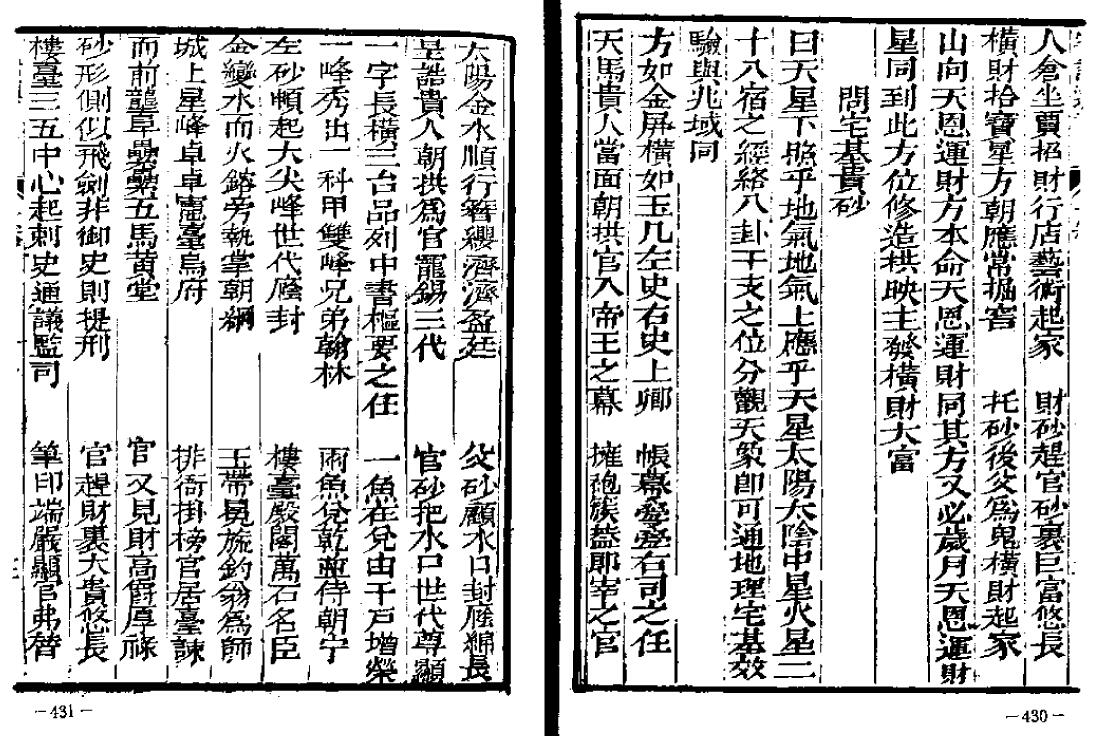 人倉坐賈招財行店藝術起家　財砂趕官砂裏巨富悠長
橫財拾寶星方朝應常掘窖　托砂後父為鬼橫財起家
山向天恩運財方本命天恩運財同其方又必歲月天恩運財
星同到此方位修造拱映主發橫財大富
問宅基貴砂
曰天星下照乎地氣地氣上應乎天星太陽太陰中星火星二
十八宿之經絡八卦干支之位分觀天象即可通地理宅基效
驗與兆域同
方如金屏橫如玉几左史右史上卿　帳幕疊疊右司之任
天馬貴人當面朝拱官入帝王之幕　擁袍簇蓋即宰之官
－430－
太陽金水順行簪纓濟濟盈廷　父砂顧水口封廕綿長
呈誥貴人朝拱為官寵錫三代　官砂把水口世代尊顯
一字長橫三台品列中書樞要之任　一魚在兌由千戶增榮
一峰秀出一科甲雙峰兄弟翰林　兩魚兌乾並侍朝宁
左砂頓起大尖峰世代廕封　樓臺殿閣萬石名臣
金變水而火鎔旁執掌朝綱　玉帶晃旒釣翁為師
城上星峰卓卓憲臺烏府　排衙掛榜官居臺諫
而前壟阜纍纍五馬黃堂　官又見財高爵厚祿
砂形側似飛劍非御史則提刑　官趕財裏大貴悠長
樓臺三五中心起刺史通議監司　筆印端嚴顯官弗替
－431－